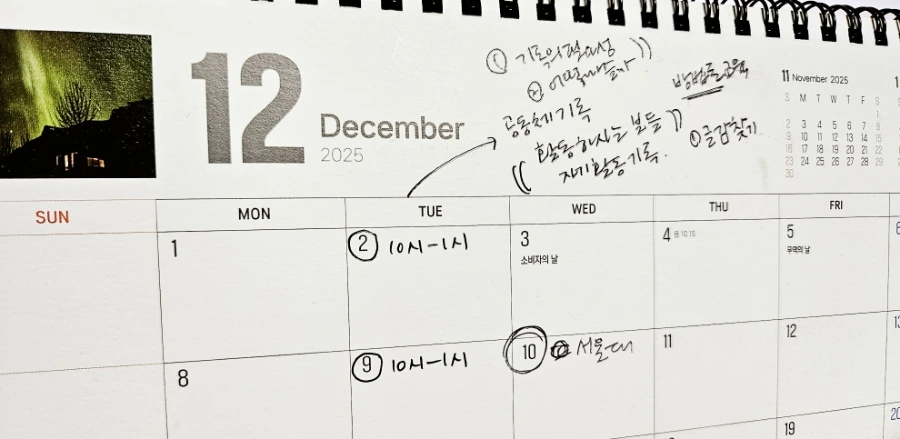 12
December
2025
① 기록의 필요성 ))
② 어떻게 쓸까
방법론 교육
공동체 기록
(( 활동하시는 분들 ))
자기활동 기록.
① 글감찾기
11 November 2025
S M T W T F S
1
2 3 4 5 6 7 8
9 10 11 12 13 14 15
16 17 18 19 20 21 22
23 24 25 26 27 28 29
30
1
SUN MON TUE WED THU FRI
1 ② 10시-1시 3 4 음 10.15 5 6
소비자의 날 무역의 날
8 ⑨ 10시-1시 ⑩ 서울대 11 12 13
19 20